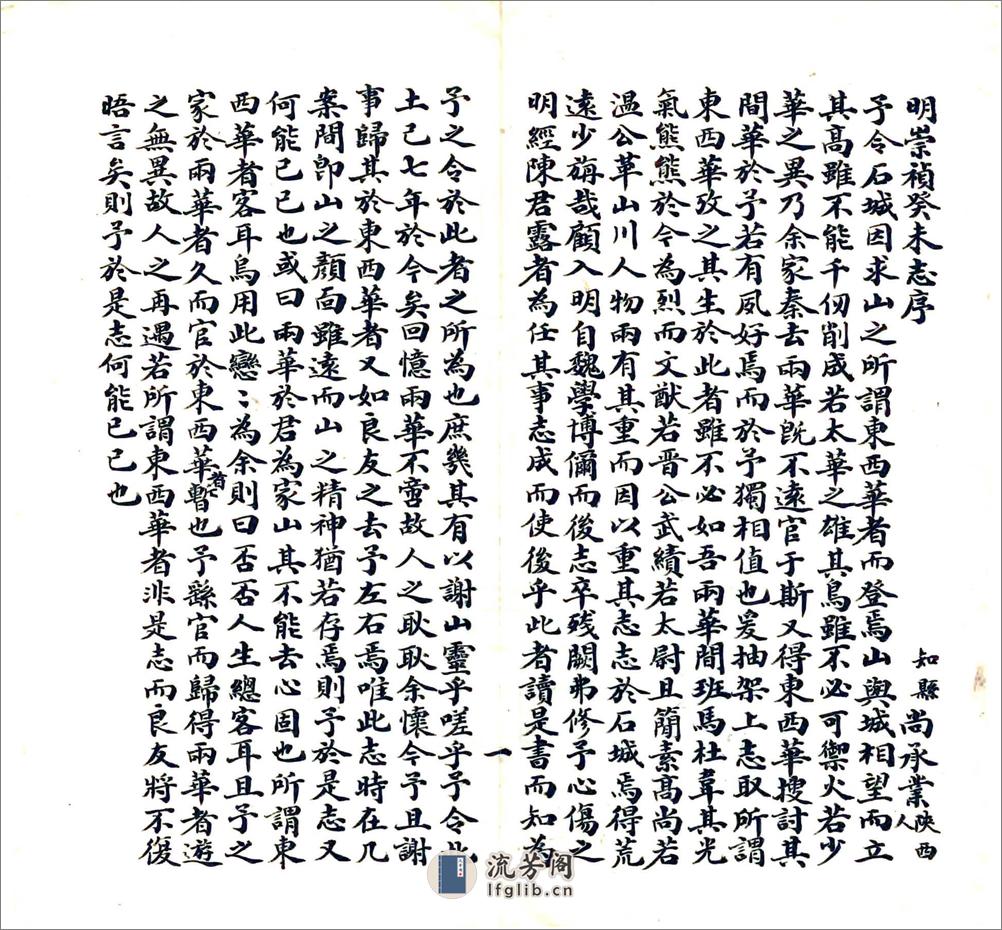 明崇禎癸未志序
知縣尚承業陝西人
予令石城因求山之所謂東西華者而登焉山與城相望而立
其高雖不能千仞削成若太華之雄其鳥雖不必可禦火若少
華之異乃余家秦去兩華旣不遠官于斯又得東西華搜討其
間華於予若有夙好焉而於予獨相值也爰抽架上志取所謂
東西華攷之其生於此者雖不必如吾兩華間班馬杜韋其光
氣熊熊於今為烈而文猷若晋公武績若太尉且簡素高尚若
温公革山川人物兩有其重而因以重其志志於石城焉得荒
遠少旃哉顧入明自魏學博儞而後志卒殘闕弗修予心傷之
明經陳君露者為任其事志成而使後乎此者讀是書而知為
一
予之令於此者之所為也庶幾其有以謝山靈乎嗟乎予令此
土已七年於今矣回憶兩華不啻故人之耿耿余懷今予且謝
事歸其於東西華者又如良友之去予左右焉唯此志時在几
案間卽山之顔面雖遠而山之精神猶若存焉則予於是志又
何能已已也或曰兩華於君為家山其不能去心固也所謂東
西華者客耳烏用此戀〻為余則曰否否人生總客耳且予之
家於兩華者久而官於東西華者暫也予繇官而歸得兩華者遊
之無異故人之再遇若所謂東西華者非是志而良友將不復
晤言矣則予於是志何能已已也
流芳阁
lfglib.cn